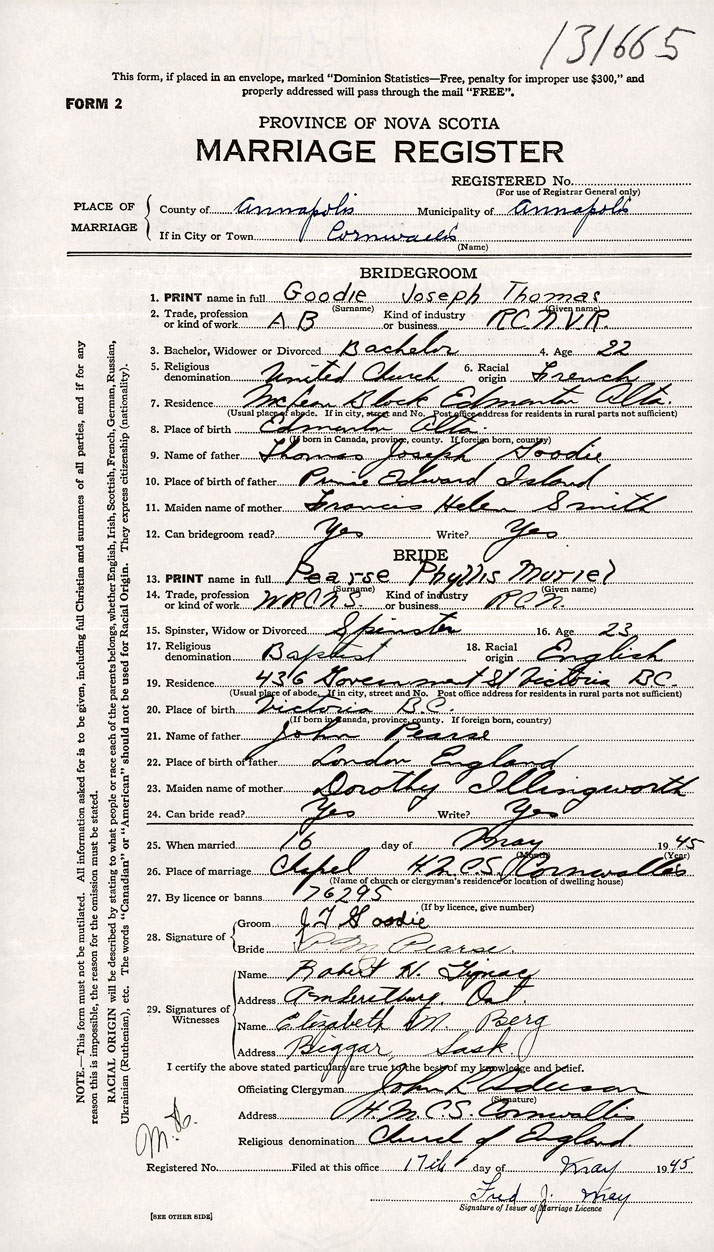 131665
This form, if placed in an envelope, marked "Dominion Statistics—Free, penalty for improper use $300," and
properly addressed will pass through the mail "FREE".
FORM 2
PROVINCE OF NOVA SCOTIA
MARRIAGE REGISTER
REGISTERED No.
(For use of Registrar General only)
PLACE OF MARRIAGE
County of Annapolis Municipality of Annapolis
If in City or Town Cornwallis
(Name)
BRIDEGROOM
1. PRINT name in full Goodie Joseph Thomas
(Surname) (Given name)
2. Trade, profession or kind of work A B Kind of industry or business R.C.N.V.R.
3. Bachelor, Widower or Divorced Bachelor 4. Age 22
5. Religious denomination United Church 6. Racial origin French
7. Residence McLean Block Edmonton Alta.
(Usual place of abode. If in city, street and No. Post office address for residents in rural parts not sufficient)
8. Place of birth Edmonton Alta.
(If born in Canada, province, county. If foreign born, county)
9. Name of father Thomas Joseph Goodie
10. Place of birth of father Prince Edward Island
11. Maiden name of mother Francis Helen Smith
12. Can bridegroom read? Yes Write? Yes
BRIDE
13. PRINT name in full Pearse Phyllis Muriel
(Surname) (Given name)
14. Trade, profession or kind of work W.R.C.N.S. Kind of industry or business R.C.N.
15. Spinster, Widow or Divorced Spinster 16. Age 23
17. Religious denomination Baptist 18. Racial origin English
19. Residence 436 Government St Victoria B.C.
(Usual place of abode. If in city, street and No. Post office address for residents in rural parts not sufficient)
20. Place of birth Victoria B.C.
(If born in canada, province, county. If foreign born, county)
21. Name of father John Pearse
22. Place of birth of father London England
23. Maiden name of mother Dorothy Illingworth
24. Can bride read? Yes Write? Yes
25. When married 16 day of May 1945
(Month) (Year)
26. Place of marriage Chapel H.M.C.S. Cornwallis
(Name of church or clergyman's residence or location of dwelling house)
27. By licence or banns 76295
(If by licence, give number)
28. Signature of
Groom J T Goodie
Bride P. M. Pearse
29. Signatures of Witnesses
Name Robert H.
Address Amherstburg Ont.
Name Elizabeth M. Berg
Address Biggar, Sask.
I certify the above stated particulars are true to the best of my knowledge and belief.
Officiating Clergyman John R. Anderson
(Signature)
Address H.M.C.S. Cornwallis
Religious denomination Church of England.
Registered No. Filed at this office 17th day of May 1945
Fred J. May
Signature of Issuer of Marriage Licence
[SEE OTHER SIDE]
NOTE.—This form must not be mutilated. All information asked for is to be given, including full Christian and surnames of all parties, and if for any
reason this is impossible, the reason for the omission must be stated.
RACIAL ORIGIN will be described by stating to what people or race each of the parents belongs, whether English, Irish, Scottish, French, German, Russian,
Ukrainian (Ruthenian), etc. The words "Canadian" or "American" should not be used for Racial Origin. They express citizenship (nationality).